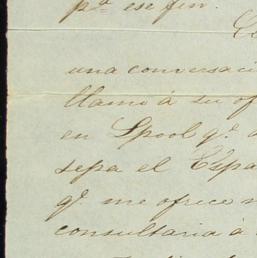 pª ese fin.
una conversaci
llamó á su of
en Lpool qº
sepa el Espa
qº me ofrece
consultaria á